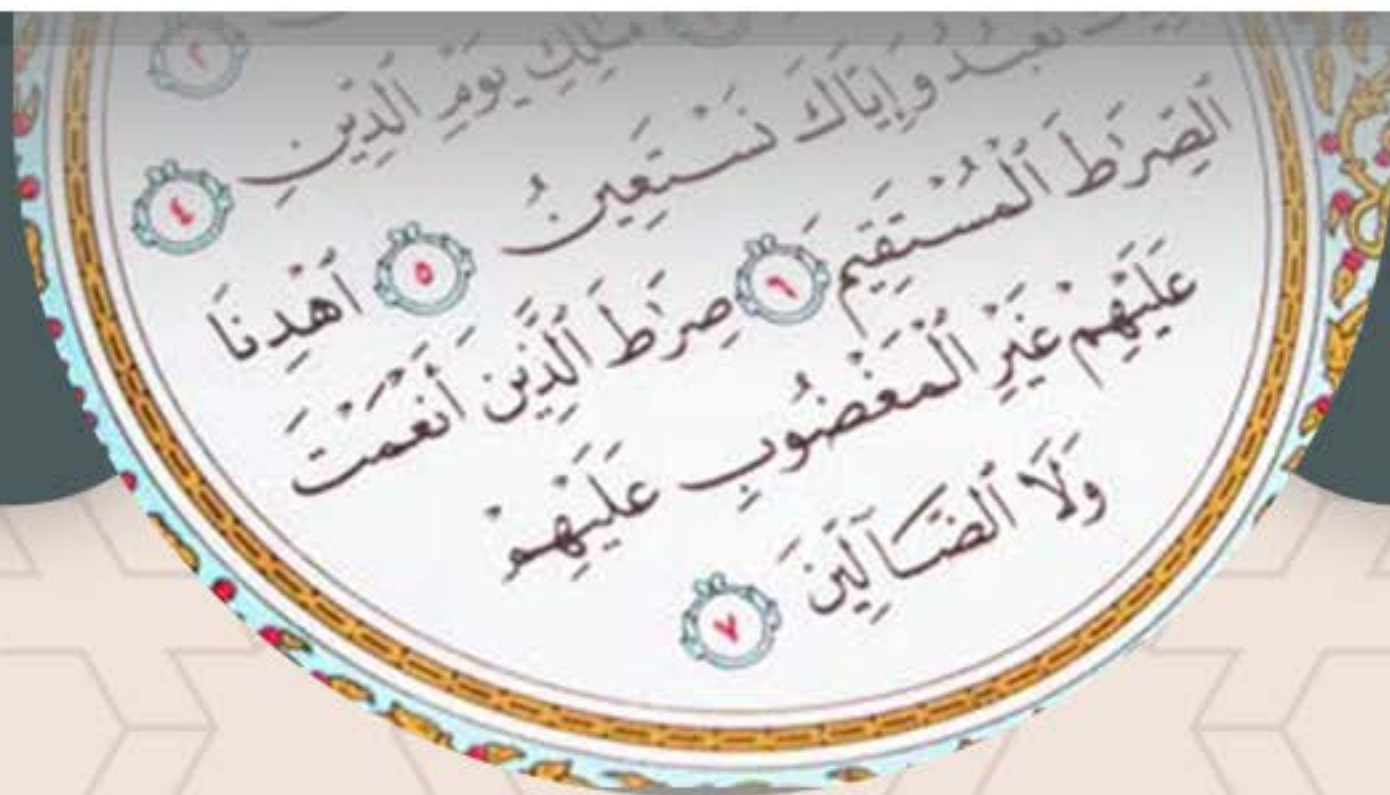 ٢
٣ مَـٰلِكِ يَوْمِ ٱلدِّينِ ٤
نَعْبُدُ وَإِيَّاكَ نَسْتَعِينُ ٥ ٱهْدِنَا
ٱلصِّرَٰطَ ٱلْمُسْتَقِيمَ ٦ صِرَٰطَ ٱلَّذِينَ أَنْعَمْتَ
عَلَيْهِمْ غَيْرِ ٱلْمَغْضُوبِ عَلَيْهِمْ
وَلَا ٱلضَّآلِّينَ ٧